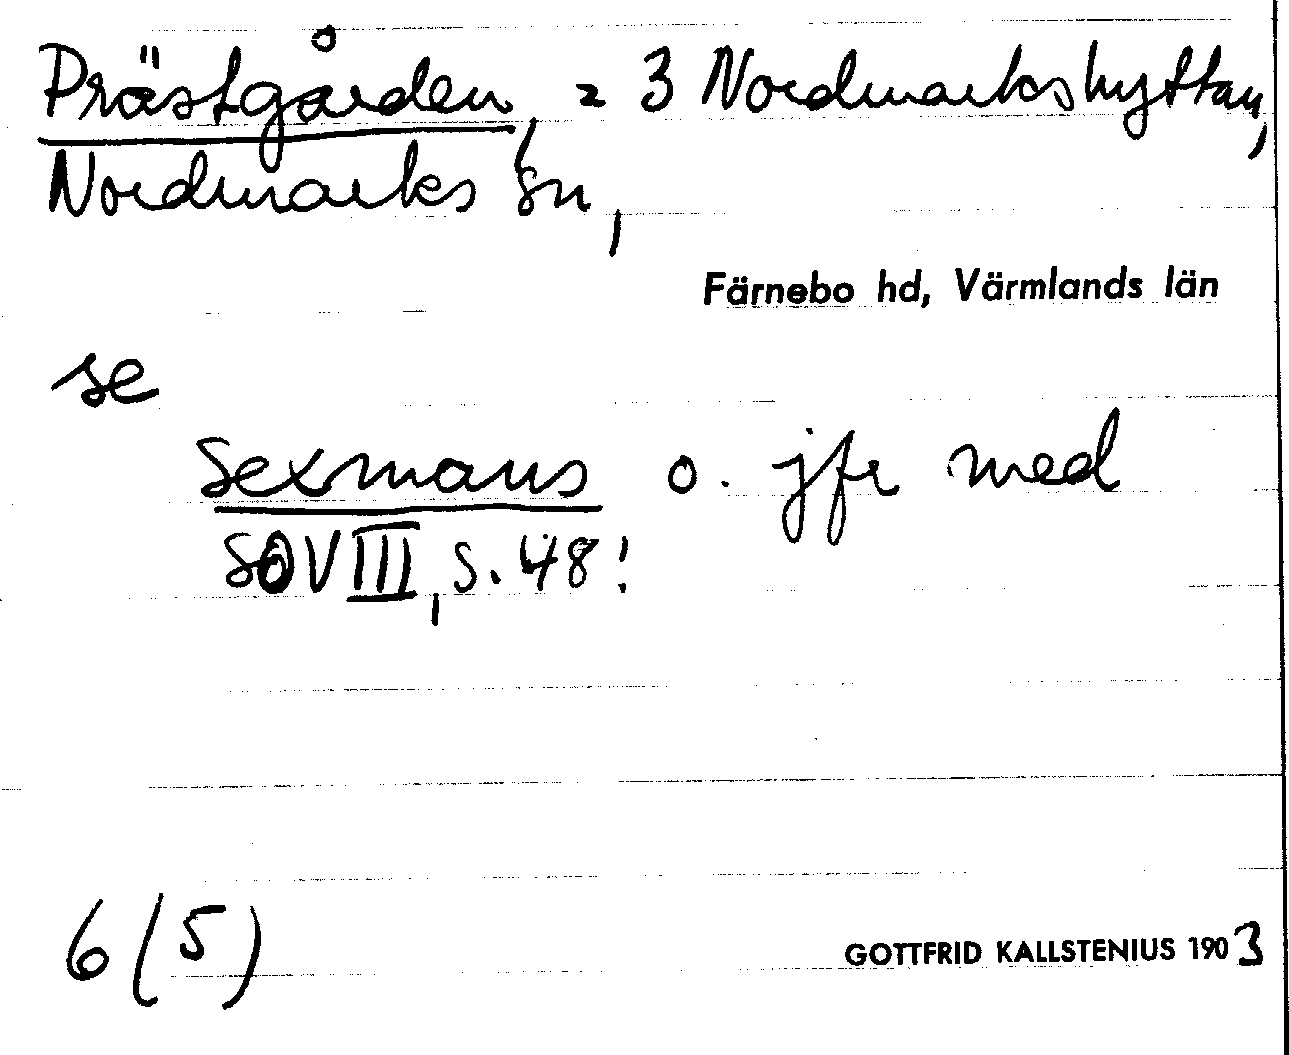 Prästgården, = 3 Nordmarkshyttan,
Nordmarks sn,
Färnebo hd, Värmlands län
se
Sexmans o. jfr med
SOVIII, s. 48!
6 (5)
GOTTFRID KALLSTENIUS 1903